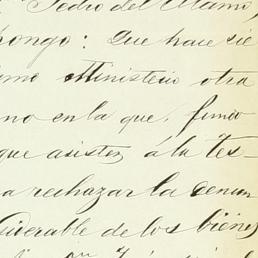 Pedro del Alamo,
pongo: Que hace sie
smo Ministerio otra
no en la que, funio
que asisten á la tes-
a rechazar la denun
iverable de los bienes